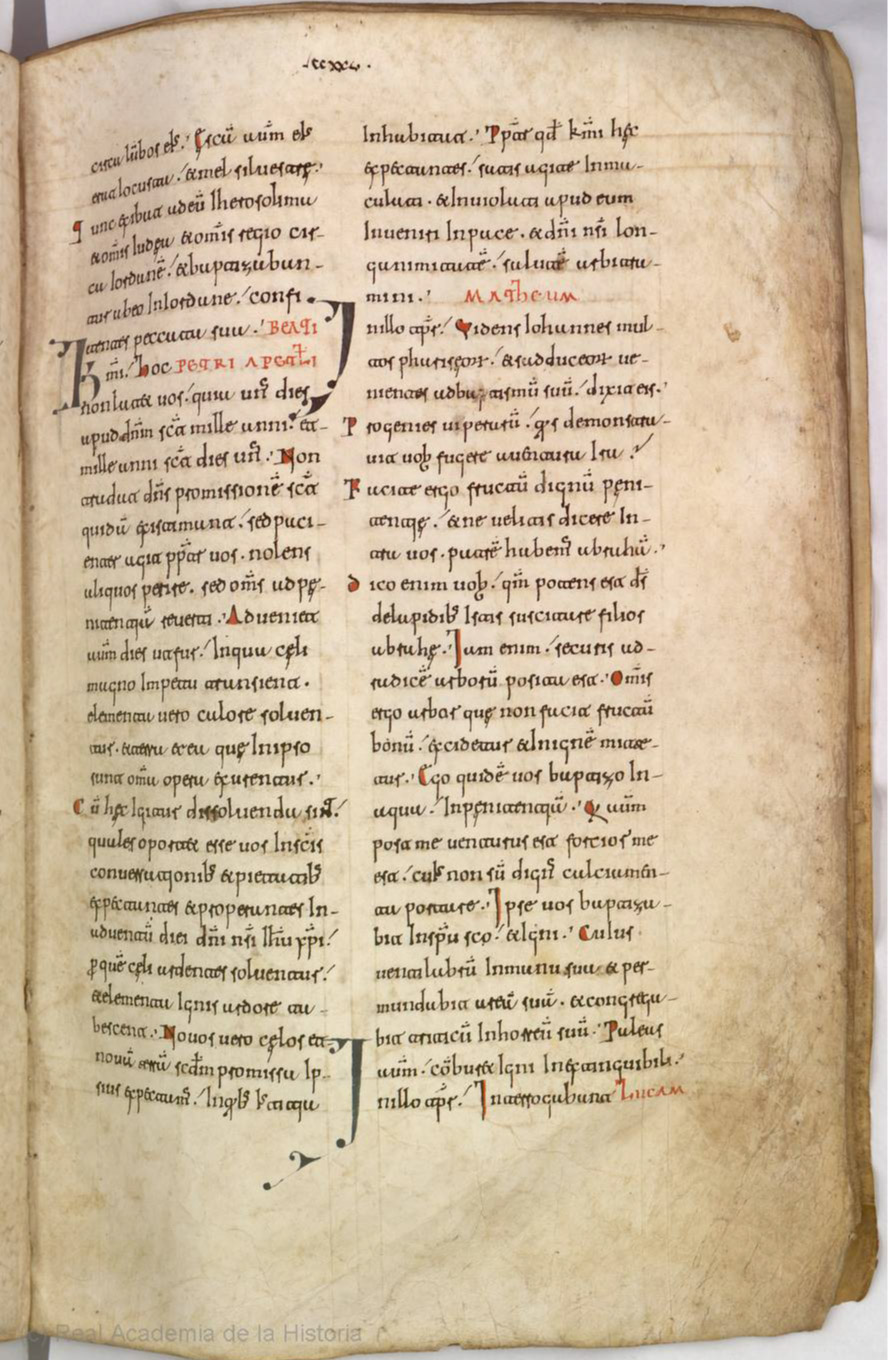 circa lūbos eīs. Escā aūm eīs
erat locusta et mel silvestre.
Tunc exibat ad eū Iherosolima
et omīs Iudea et omīs regio cir-
ca Iordanē et baptizaban-
tur ab eo in Iordane confi-
tentes peccata sua. BEATI
Kmī. hoc PETRI APSTLI
non lateat vos quia un̄s dies
apud dn̄m sc̄a mille anni et
mille anni sc̄a dies un̄s. Non
tardat dn̄s promissionē sc̄a
quidā existimant sed paci-
enter agit pp̄ter vos. nolens
aliquos perire. sed om̄s ad pe-
nitentiā reverti. Adveniet
aūm dies ut fur in qua celi
magno impetu transient.
elementa vero calore solven-
tur. et terra et ea que in ipso
sunt om̄a opera exurentur.
Cū hec igitur dissolvenda sint
quales oportet esse vos in sc̄is
conversationib̄ et pietatib̄
expectantes et properantes in
adventū diei dn̄i nsī ih̄u xp̄i
p quē celi ardentes solventur
et elementa ignis ardore ta-
bescent. Novos vero celos et
novā terrā scd̄m promissa ip-
sius expectam̄s in qb̄ iustitia
inhabitat. Pp̄ter qd̄ km̄i hec
expectantes satis agite inma-
culati. et inviolati apud eum
inveniri in pace. et dn̄i nsī lon-
ganimitatē salutē arbitra-
mini. MATHEUM
In illo tp̄re. Videns Iohannes mul-
tos phariseorum et sadduceorum ve-
nientes ad baptismū suū dixit eis.
Progenies viperarū q̄s demonstra-
vit vob̄ fugere a ventura ira
Facite ergo fructū dignū peni-
tentie. et ne velitis dicere in-
tra vos. patrē habem̄s abrahā.
Dico enim vob̄ qm̄ potens est d̄s
de lapidib̄ istis suscitare filios
abrahe. Iam enim securis ad
radicē arborū posita est. Om̄is
ergo arbor que non facit fructū
bonū excidetur et in ignē mitte-
tur. Ego quidē vos baptizo in
aqua in penitentiā. Qui aūm
post me venturus est fortior me
est cuīs non sū dign̄s calciamen-
ta portare. Ipse vos baptiza-
bit in sp̄u sc̄o et igni. Cuius
ventilabrū in manu sua et per-
mundabit areā suā. et congrega-
bit triticū in horreū suū. Paleas
aūm cōburet igni inextinguibili.
In illo tp̄re. Interrogabant LUCAM